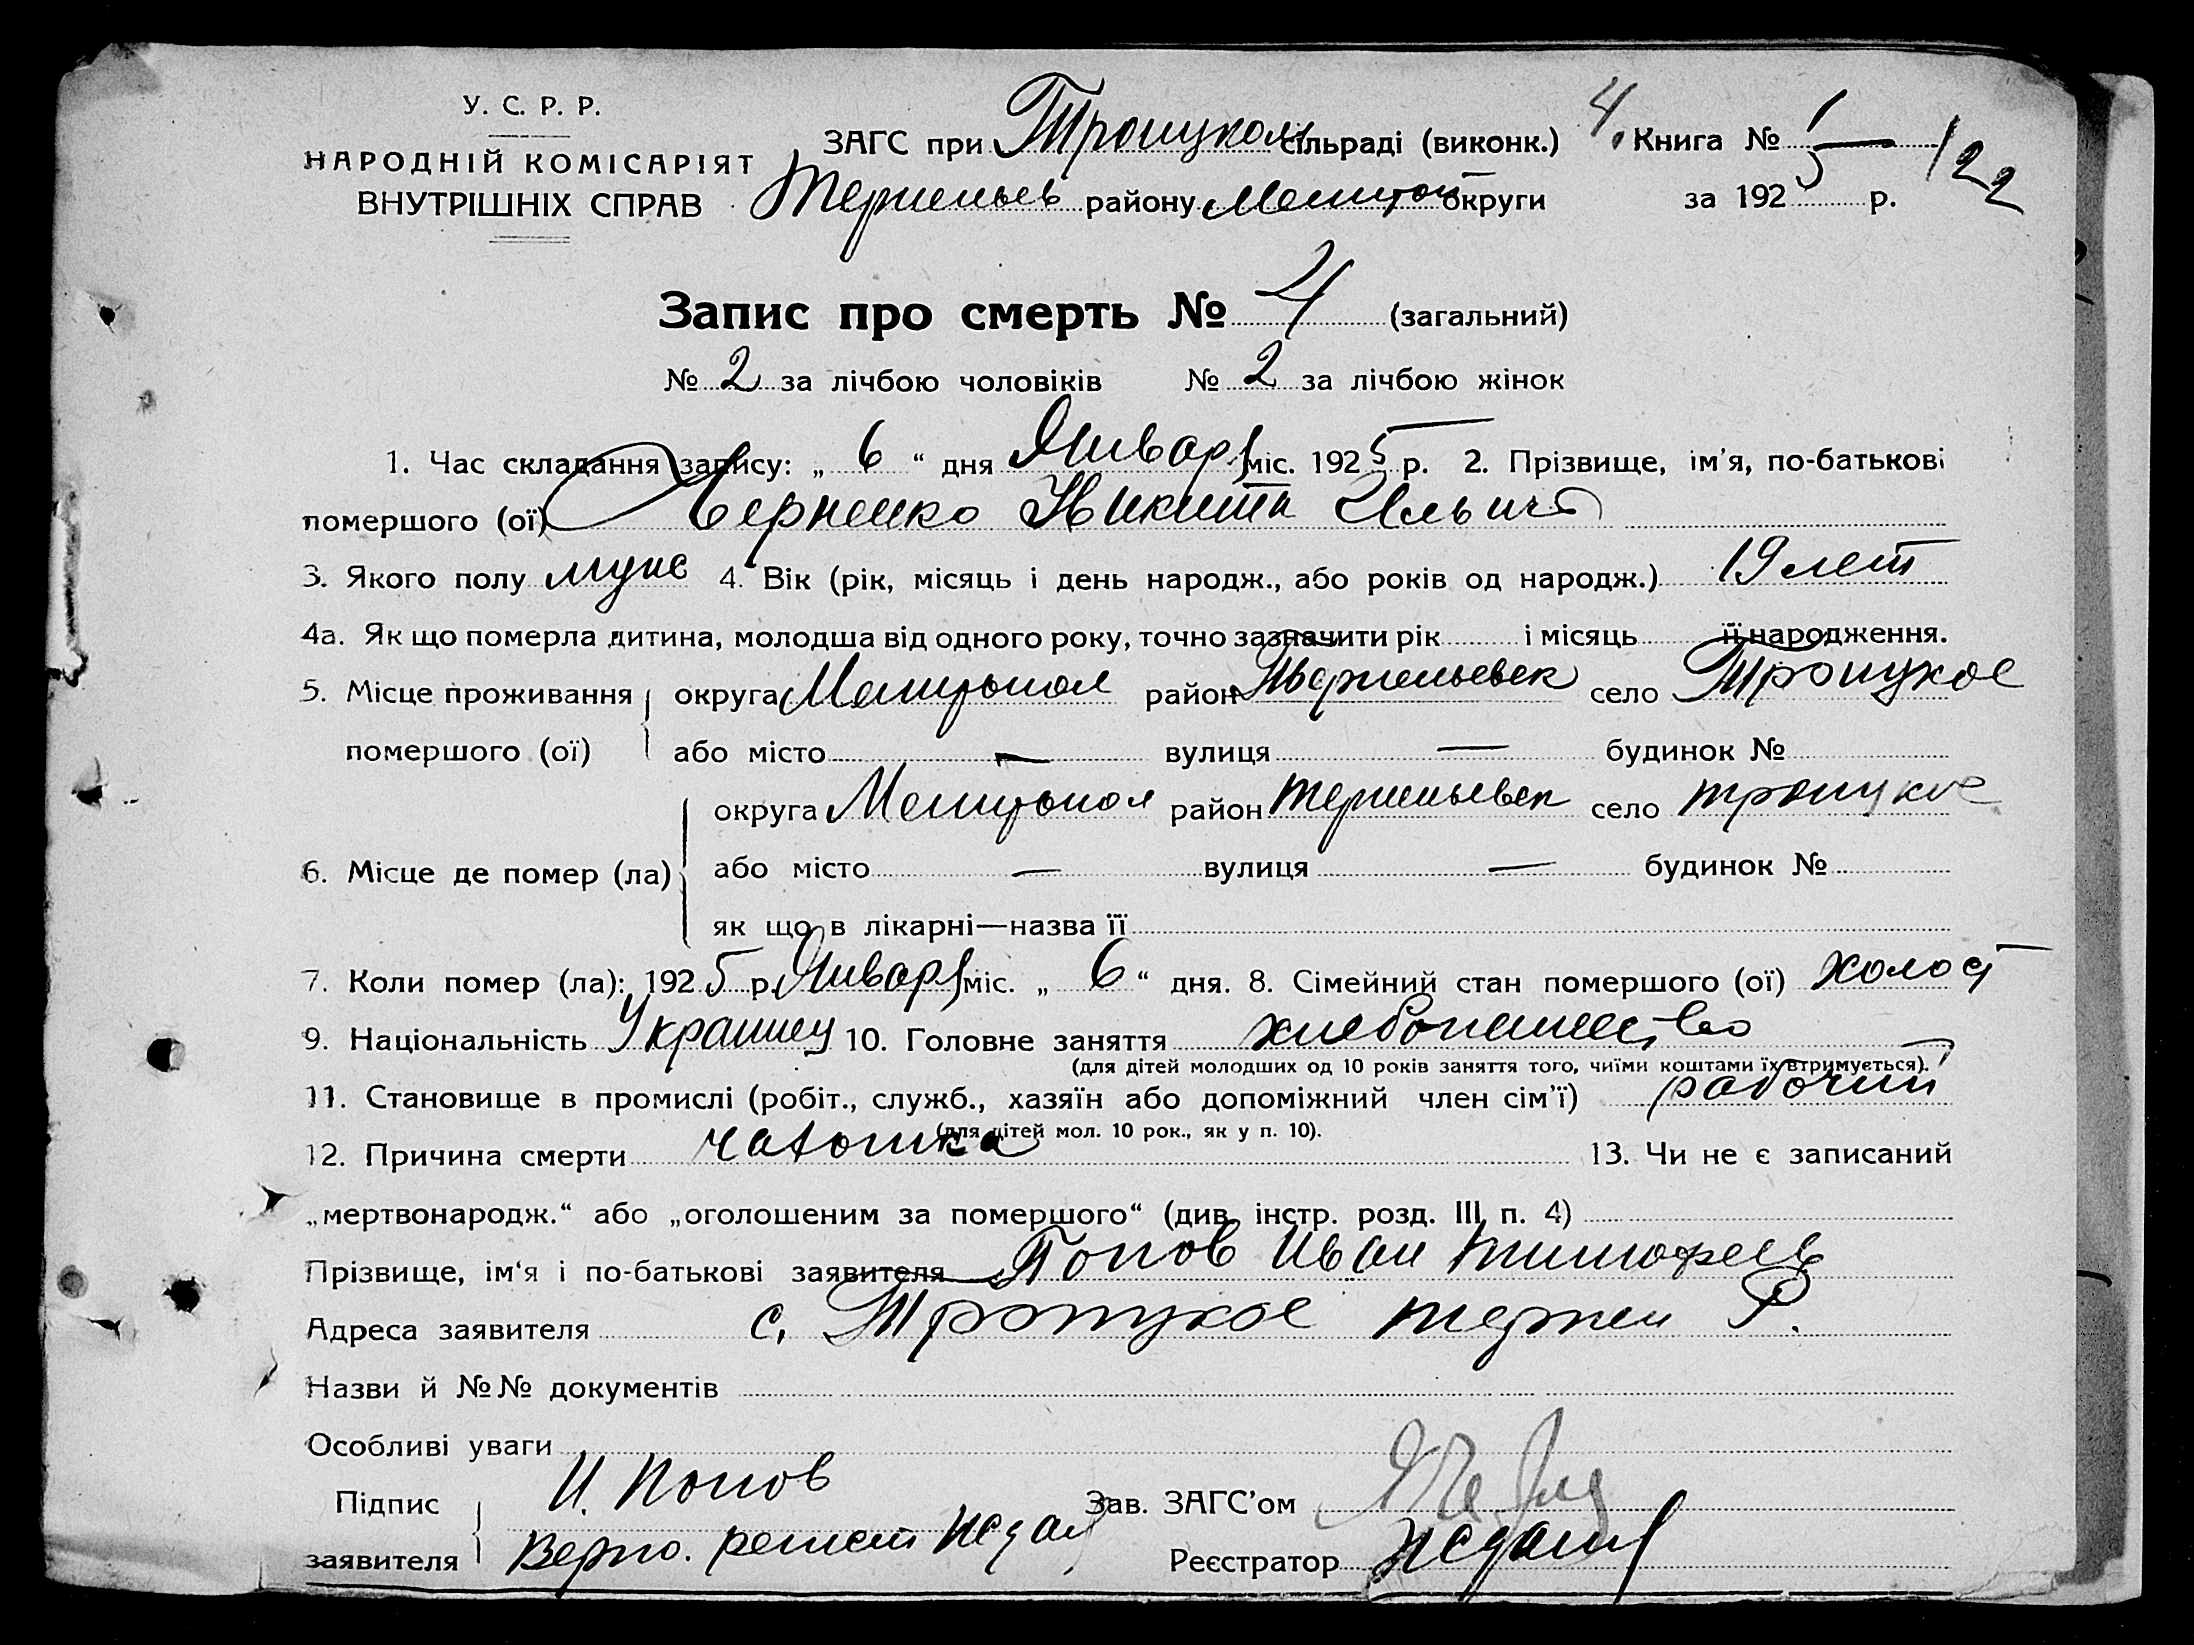 У. С. Р. Р.
НАРОДНІЙ КОМІСАРІЯТ
ВНУТРІШНІХ СПРАВ
ЗАГС при Троицком сільраді (виконк.) 4. Книга № 1
району Мелитоп округи за 1925 р. 122
Запис про смерть № 4 (загальний)
№ 2 за лічбою чоловіків № 2 за лічбою жінок
1. Час складання запису: „ 6 “ дня Января міс. 1925 р. 2. Прізвище, ім'я, по-батькові
помершого (ої) Черненко Никита Ильич
3. Якого полу муж 4. Вік (рік, місяць і день народж., або років од народж.) 19 лет
4а. Як що померла дитина, молодша від одного року, точно зазначити рік і місяць її народження.
5. Місце проживання округа Мелитопол район село Троицкое
помершого (ої) або місто — вулиця — будинок №
округа Мелитопол район село троицкое
6. Місце де помер (ла) або місто — вулиця — будинок №
як що в лікарні—назва її
7. Коли помер (ла): 1925 р. Января міс. „ 6 “ дня. 8. Сімейний стан помершого (ої) холост
9. Національність Украинец 10. Головне заняття хлебопашество
(для дітей молодших од 10 років заняття того, чиїми коштами їх втримується).
11. Становище в промислі (робіт., служб., хазяїн або допоміжний член сім'ї) рабочий
(для дітей мол. 10 рок., як у п. 10).
12. Причина смерти чахотка 13. Чи не є записаний
„мертвонародж.“ або „оголошеним за помершого“ (див. інстр. розд. III п. 4)
Прізвище, ім'я і по-батькові заявителя Попов Иван Тимофеев
Адреса заявителя с. Троицкое Р.
Назви й №№ документів
Особливі уваги
Підпис И. Попов Зав. ЗАГС'ом
заявителя Реєстратор